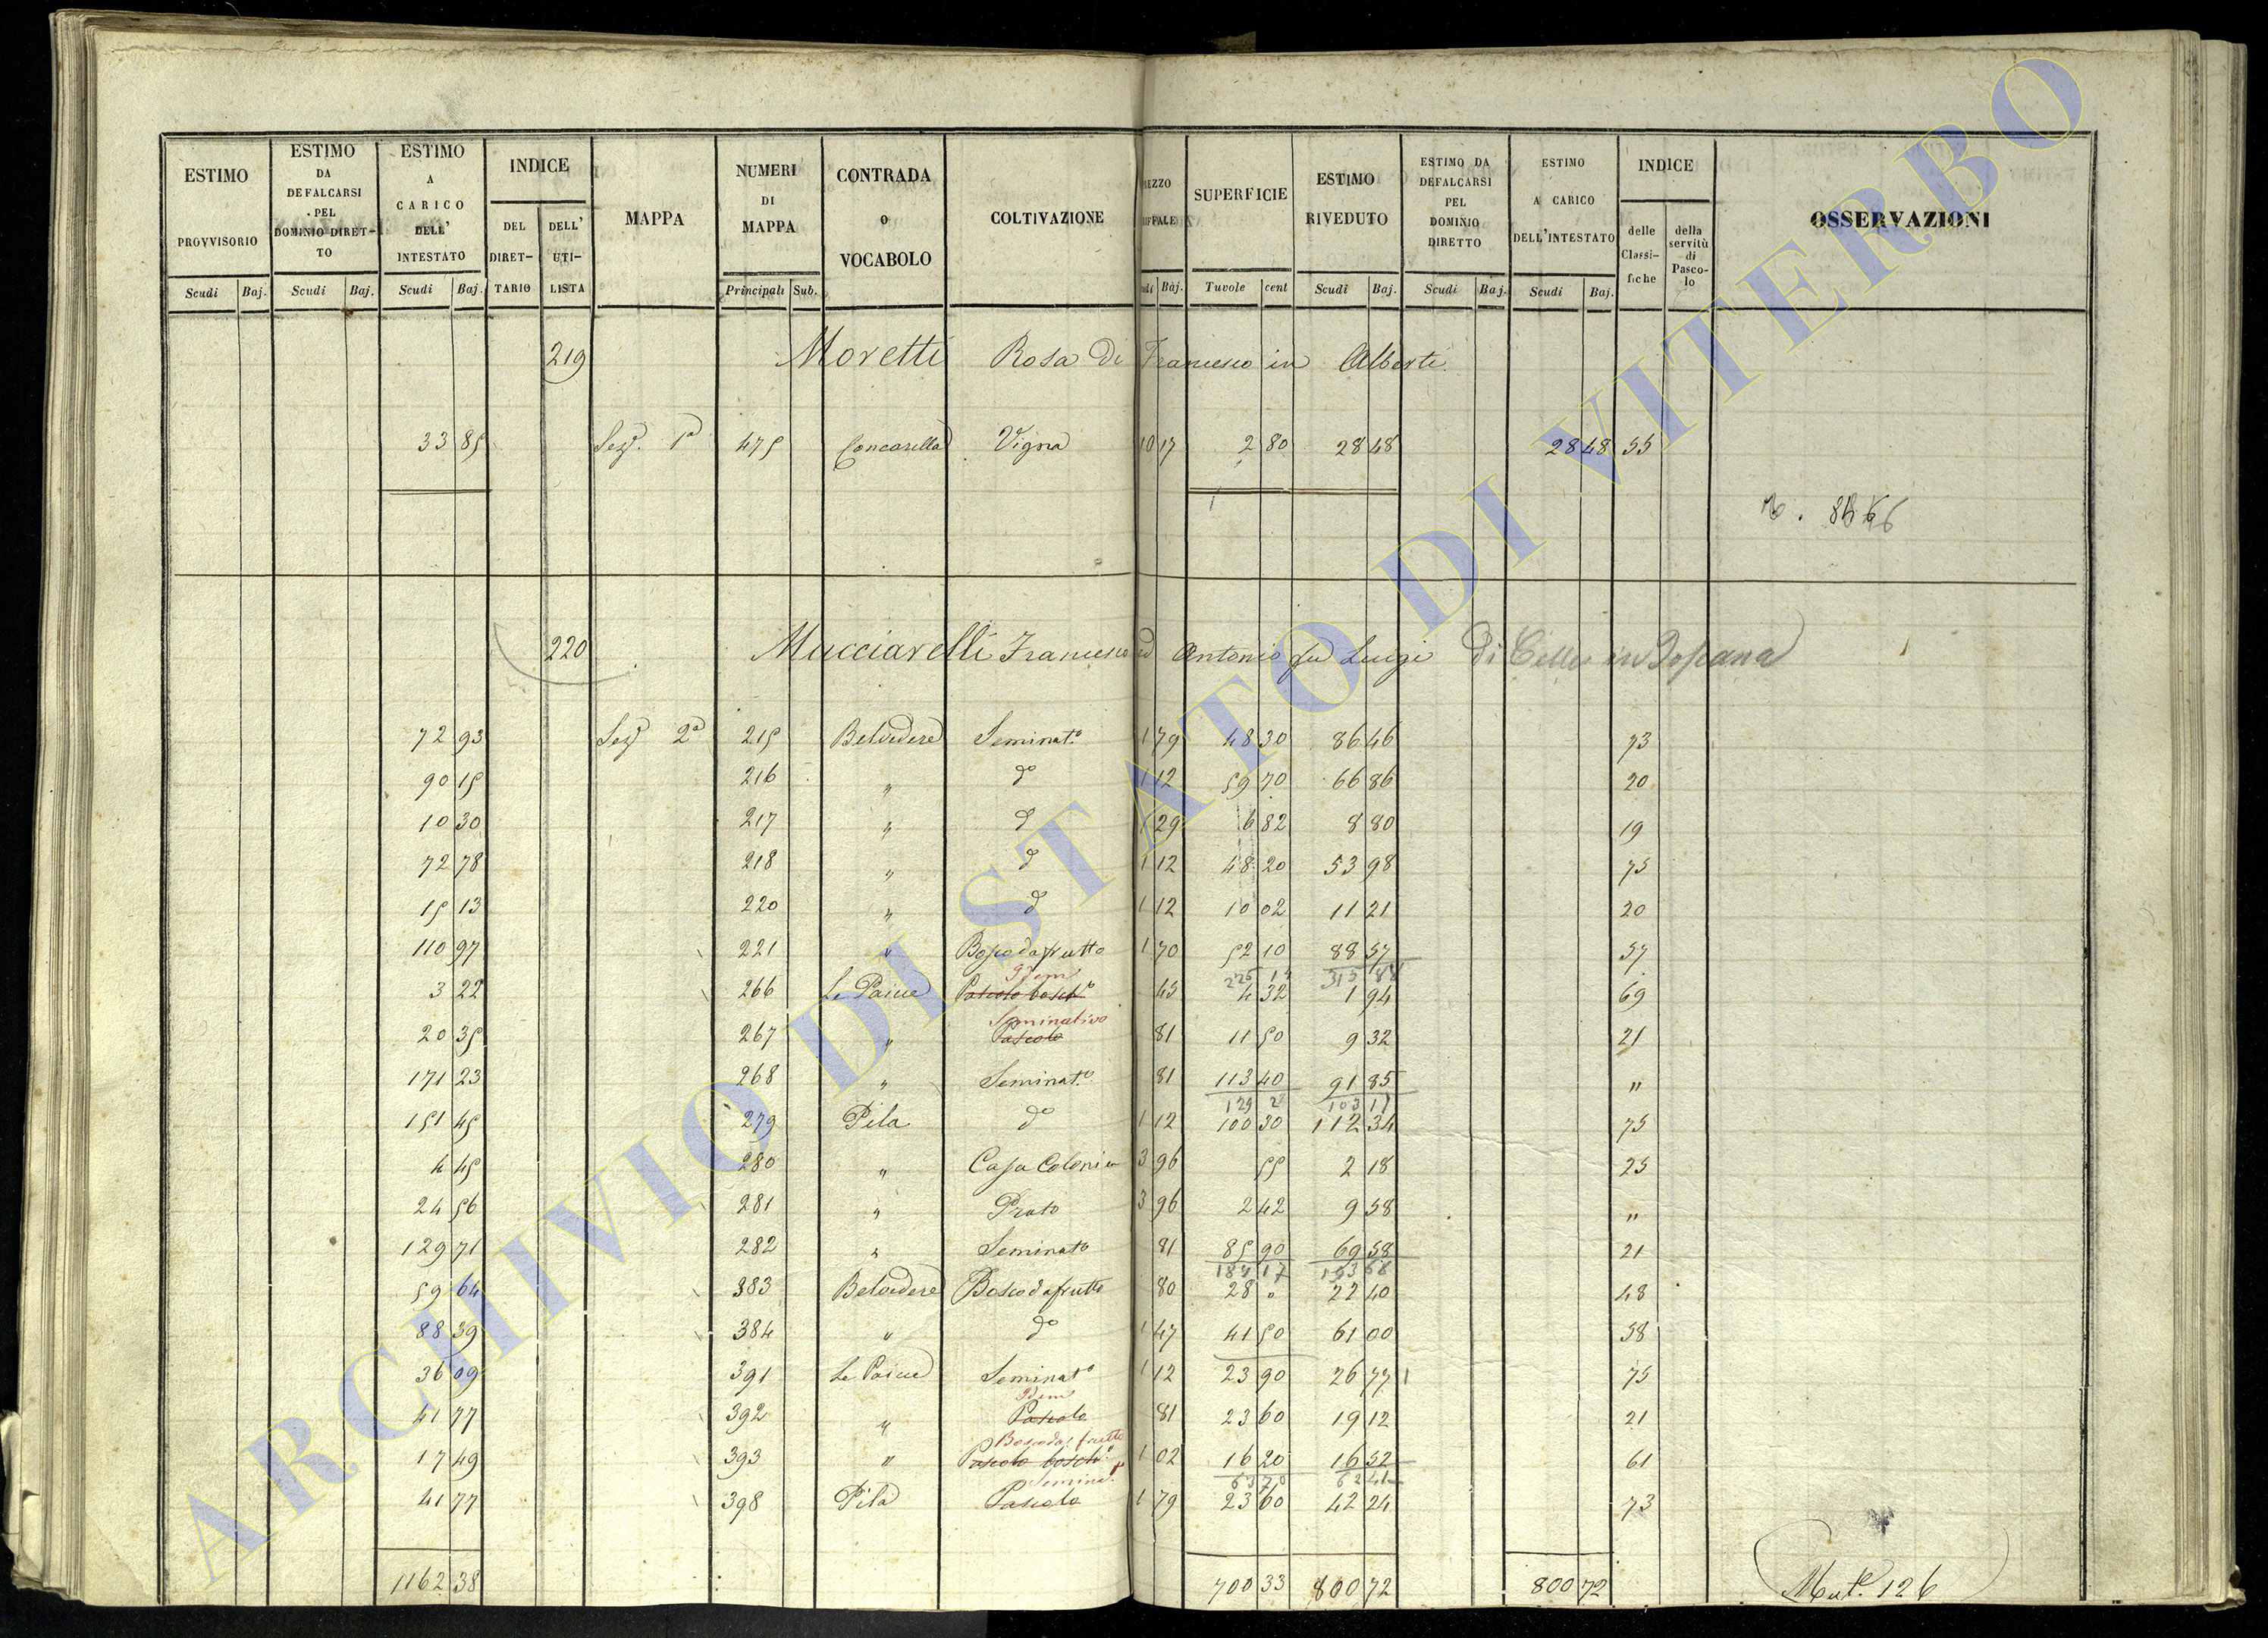 ESTIMO PROVVISORIO | ESTIMO DA DEFALCARSI PEL DOMINIO DIRETTO | ESTIMO A CARICO DELL' INTESTATO | INDICE | MAPPA | NUMERI DI MAPPA | CONTRADA o VOCABOLO | COLTIVAZIONE | SUPERFICIE | ESTIMO RIVEDUTO | ESTIMO DA DEFALCARSI PEL DOMINIO DIRETTO | ESTIMO A CARICO DELL'INTESTATO | INDICE | OSSERVAZIONI
DEL DIRETTARIO | DELL' UTILISTA | delle Classifiche | della servitù di Pascolo
Scudi | Baj. | Scudi | Baj. | Scudi | Baj. | Principali | Sub. | Baj. | Tuvole | cent | Scudi | Baj. | Scudi | Baj. | Scudi | Baj.
219 Moretti Rosa di Francesco in Alberti
33 85 Sez. 1a 475 Concarella Vigna 10 17 2 80 28 48 28 48 55
220 Mucciarelli Francesco ed Antonio fu Luigi di Celle in Toscana
72 93 Sez. 2a 215 Belvedere Seminato 1 79 48 30 86 46 73
90 15 216 " do 1 12 59 70 66 86 20
10 30 217 " d 1 29 6 82 8 80 19
72 78 218 " d 1 12 48 20 53 98 75
15 13 220 " d 1 12 10 02 11 21 20
110 97 221 " Bosco da frutto 1 70 52 10 88 57 57
225 14 315 88
Idem
3 22 266 Le Paiue Pascolo bosch.o 45 4 32 1 94 69
Seminativo
20 35 267 " Pascolo 81 11 50 9 32 21
171 23 268 " Seminat.o 81 113 40 91 85 "
129 2 103 11
151 45 279 Pila do 1 12 100 30 112 34 75
4 45 280 " Casa Colonica 3 96 55 2 18 25
24 56 281 " Prato 3 96 2 42 9 58 "
129 71 282 " Seminato 81 85 90 69 58 21
189 17 193 68
59 64 383 Belvedere Bosco da frutto 80 28 0 22 40 48
88 39 384 " do 1 47 41 50 61 00 38
36 09 391 Le Paiue Seminato 1 12 23 90 26 77 75
Idem
41 77 392 " Pascolo 81 23 60 19 12 21
Bosco da frutto
17 49 393 " Pascolo bosch.o 1 02 16 20 16 52 61
63 70 62 41
Seminat.o
41 77 398 Pila Pascolo 1 79 23 60 42 24 73
1162 38 700 33 800 72 800 72 Mut.e 126
ARCHIVIO DI STATO DI VITERBO